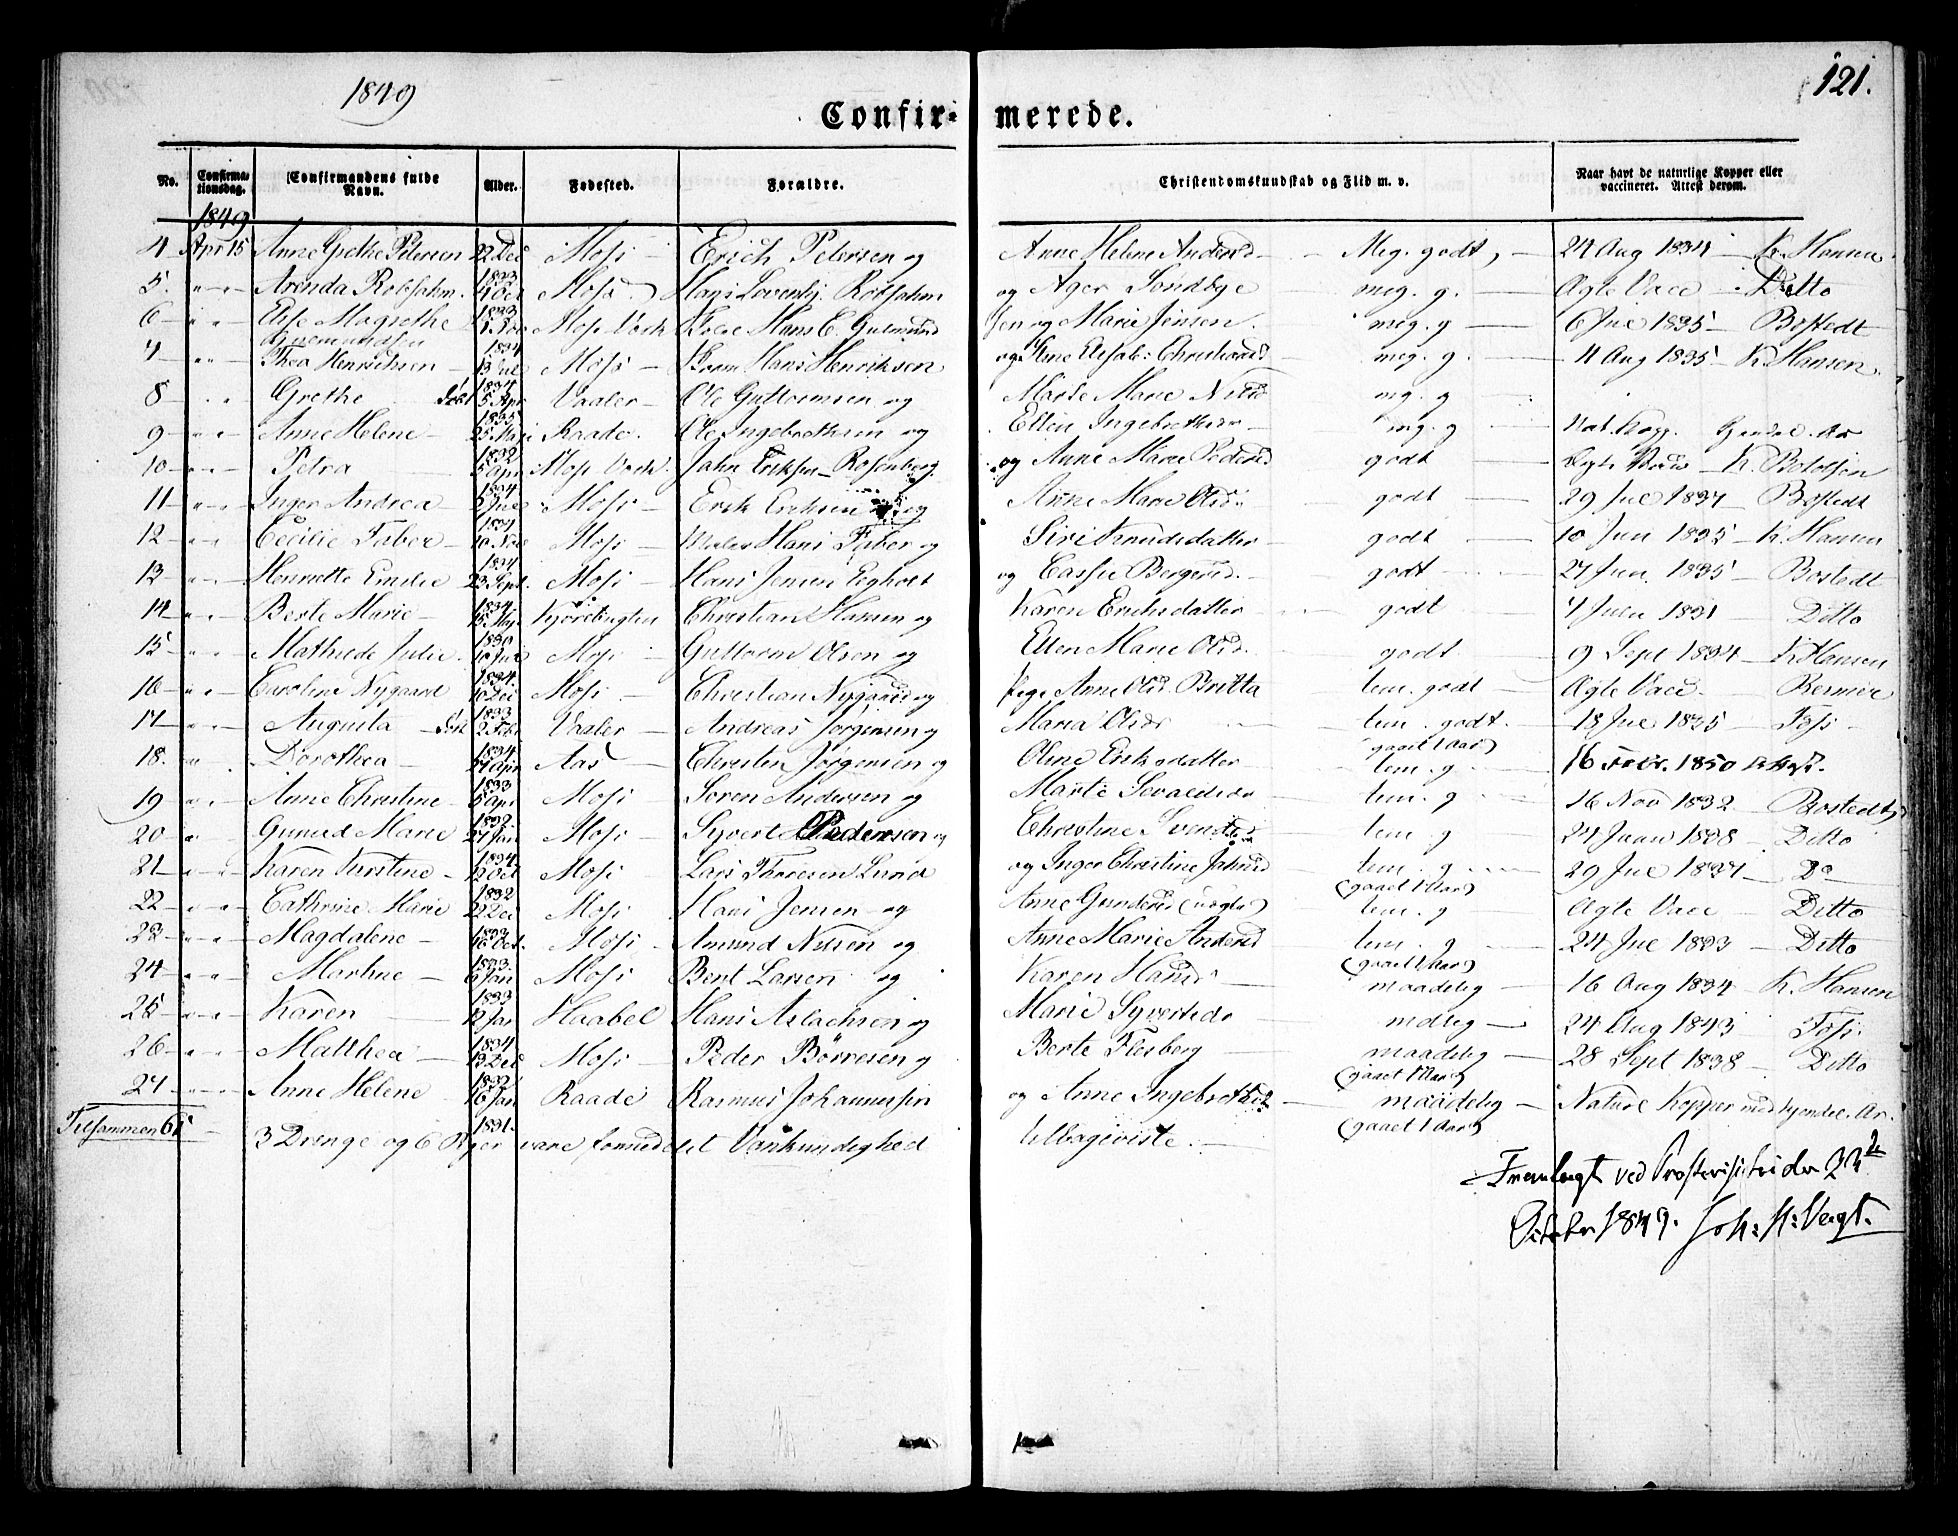 1849
121.
Confir- merede.
No. Confirmationsdag. Confirmandens fulde Navn. Alder. Fødested. Forældre. Christendomskundskab og Flid m. v. Naar havt de naturlige Kopper eller vaccineret. Attest derom.
1849
4 Apr 15 Anne Grethe Petersen 22 Dec 1833 Moss Erich Petersen og Anne Helene Andersd Meg. godt 24 Aug 1834 K. Hansen
5. " " Arinda Robsahm 4 Oct 1833 Moss Hans Robsahm og Ager Sondbye meg. g. Ægte Vacc Ditto
6 " " Else Magrethe 1834 Moss Værk Hans C. og Marie Jensen meg. g 6 Jul 1835 Bostedt
7 " " Thea Henrichsen 13 Jul 1834 Moss Hans Henriksen og meg. g. 11 Aug 1835 K Hansen
8 " " Grethe 5 Apr 1835 Vaaler Ole Guttormsen og Marte Marie Nilsd meg. g
9 " " Anne Helene 25 1832 Raade Ole Ingebrethsen og Ellen Ingebrethsd meg. g Nat. Kopp.
10 " " Petra 5 Apr 1834 Moss Værk. John Eriksen Rosenberg og Anne Marie Pedersd godt Ægte
11 " " Inger Andrea 1834 Moss Erik Eriksen og Anne Marie Olsd godt 29 Jul 1837 Bostedt
12 " " Cecilie Faber 10 Nov 1834 Moss Maler Hans Faber og Siri Knudsdatter godt 10 Jun 1835 K. Hansen
13 " " Henriette Emilie 23 Sept. 1834 Moss Hans Jensen Eegholt og Bergersd. godt 27 Jun. 1835 Bostedt
14 " " Berte Marie 15 1830 Christian Hansen og Karen Eriksdatter godt 7 1831 Ditto
15 " " Mathilde Julie 10 Jul 1834 Moss Guttorm Olsen og Ellen Marie Olsd. godt 9 Sept 1834 K Hansen
16 " " Caroline Nygaard 10 Dec 1833 Moss Christian Nygaard og Anne Olsd. Britta tem. godt Ægte Vacc.
17 " " Augusta 2 Feb 1834 Vaaler Andreas Jørgensen og Maria Olsdr tem. godt. 18 Jul 1835 Foss
(gaaet 1 Aar)
18. " Dorothea 27 Apr 1833 Aas Christen Jørgensen og Oline Eriksdatter tem. g 16 Febr. 1850
19 " " Anne Christine 5 Apr 1832 Moss Soren Andersen og Marte tem. g 16 Nov 1832. Bostedt
20 " Gunild Marie 27 Jan 1834 Moss Syvert Pedersen og Christine Svendsd tem. g 1838 Ditto
21 " " Karen Kirstine 12 Oct 1832 Moss Lars Thoresen Lunde og Inger Christine tem. g 29 Jul 1837 Do
(gaaet 1 Aar)
22 " " Cathrine Marie 22 Dec 1833 Moss Hans Jensen og Anne Gundersd tem. g Ægte Vacc Ditto
23 " " Magdalene 16 Oct. 1833 Moss Amund Nilsen og Anne Marie Andersd tem. g 24 Jul 1833 Ditto
(gaaet 1 Aar)
24 " " Martine 6 Jan 1833 Moss Bent Larsen og Karen Hansd maadelig 16 Aug 1834 K. Hansen
25 " " Karen 12 Jan 1834 Haabel Hans Aslachsen og Marie Syvertsdr mdleg 24 Aug 1843 Foss
26 " " Matthea 13 Dec 1832 Moss Peder Börresen og Berte Flesberg maadelig 28 Sept 1838 Ditto
(gaaet 1 Aar)
27 " " Anne Helene 16 Jan 1831. Raade Rasmus Johannessen og Anne Ingebrethsd maadelig Naturl Kopper med Ar.
(gaaet 1 Aar)
Tilsammen 61 3 Drenge og 6 Piger vare formedelst Vankundighed tilbageviste.
Fremlagt ved Prostevisitei den 23de
October 1849. Joh: H: Vogt.